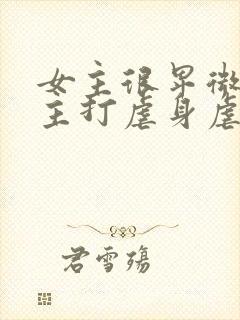 女主很早微
主打虐身虐
君雪殇